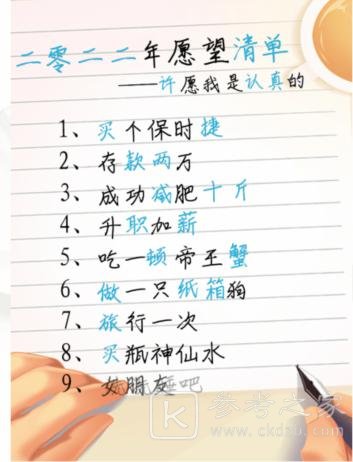 二零二二年愿望清单
——许愿我是认真的
1、买个保时捷
2、存款两万
3、成功减肥十斤
4、升职加薪
5、吃一顿帝王蟹
6、做一只纸箱狗
7、旅行一次
8、买瓶神仙水
9、女朋友吧
K 参考之家
www.ckdzb.com